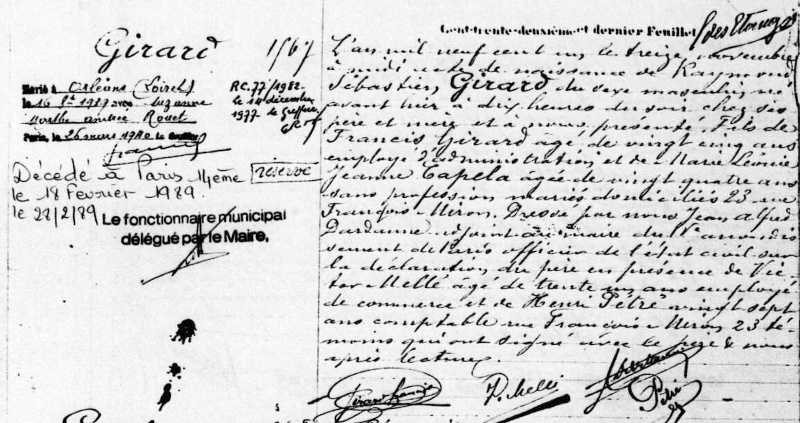 Cent-trente-deuxième et dernier Feuillet
Girard
1567
Marié à Orléans (Loiret)
le 16 8bre 1939 avec Suzanne
Marthe Rouet
Paris, le 26 mars 1940 Le Greffier
R.C. 77/1982
le 14 décembre
1977 le Greffier
réservé
Décédé à Paris 14ème
le 18 Février 1989.
le 28/2/89
Le fonctionnaire municipal
délégué par le Maire,
L'an mil neuf cent un le treize novembre
à midi acte de naissance de Raymond
Sébastien Girard du sexe masculin né
avant hier à dix heures du soir chez ses
père et mère et à nous présenté. Fils de
Francis Girard âgé de vingt cinq ans
employé d'administration et de Marie Léonie
Jeanne Capela âgée de vingt quatre ans
sans profession mariés domiciliés 23 rue
François Miron. Dressé par nous Jean Alfred
Dardanne adjoint au maire du arrondis
sement de Paris officier de l'état civil sur
la déclaration du père en présence de Vic
tor Mellé âgé de trente un ans employé
de commerce et de Henri Pétré vingt sept
ans comptable rue François Miron 23 té-
moins qui ont signé avec le père & nous
après lecture.
Girard Francis
V. Mellé
Pétré